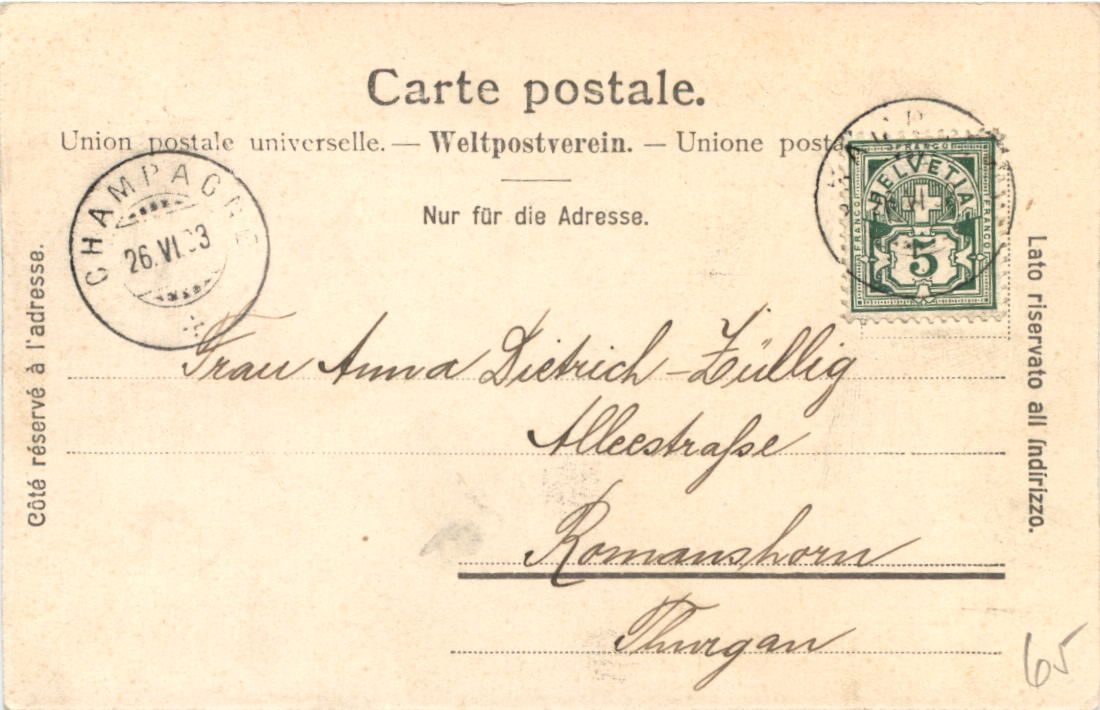 Carte postale.
Union postale universelle. — Weltpostverein. — Unione posta
Nur für die Adresse.
CHAMPAGNE
26.VI.03
FRANCO
HELVETIA
FRANCO
FRANCO
5
Côté réservé à l'adresse.
Lato riservato all Indirizzo.
Frau Anna Dietrich-Züllig
Alleestraße
Romanshorn
Thurgau
65